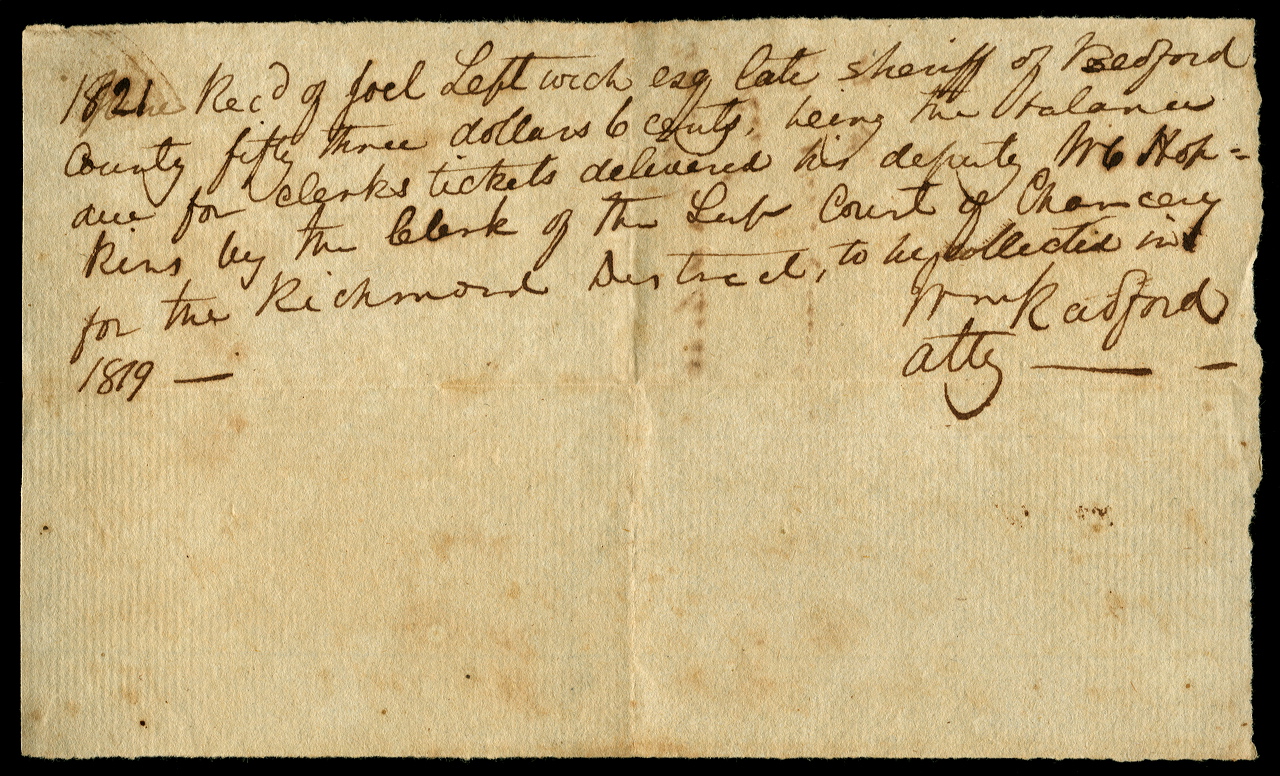 1821 Recd of Joel Leftwich esq late sheriff of Bedford
County fifty three dollars 6 cents, being the balance
due for clerks tickets delivered his deputy Wm Hop=
kins by the Clerk of the Sup Court of Chancery
for the Richmond District, to be collected in
1819 —
Wm Radford
atty — –